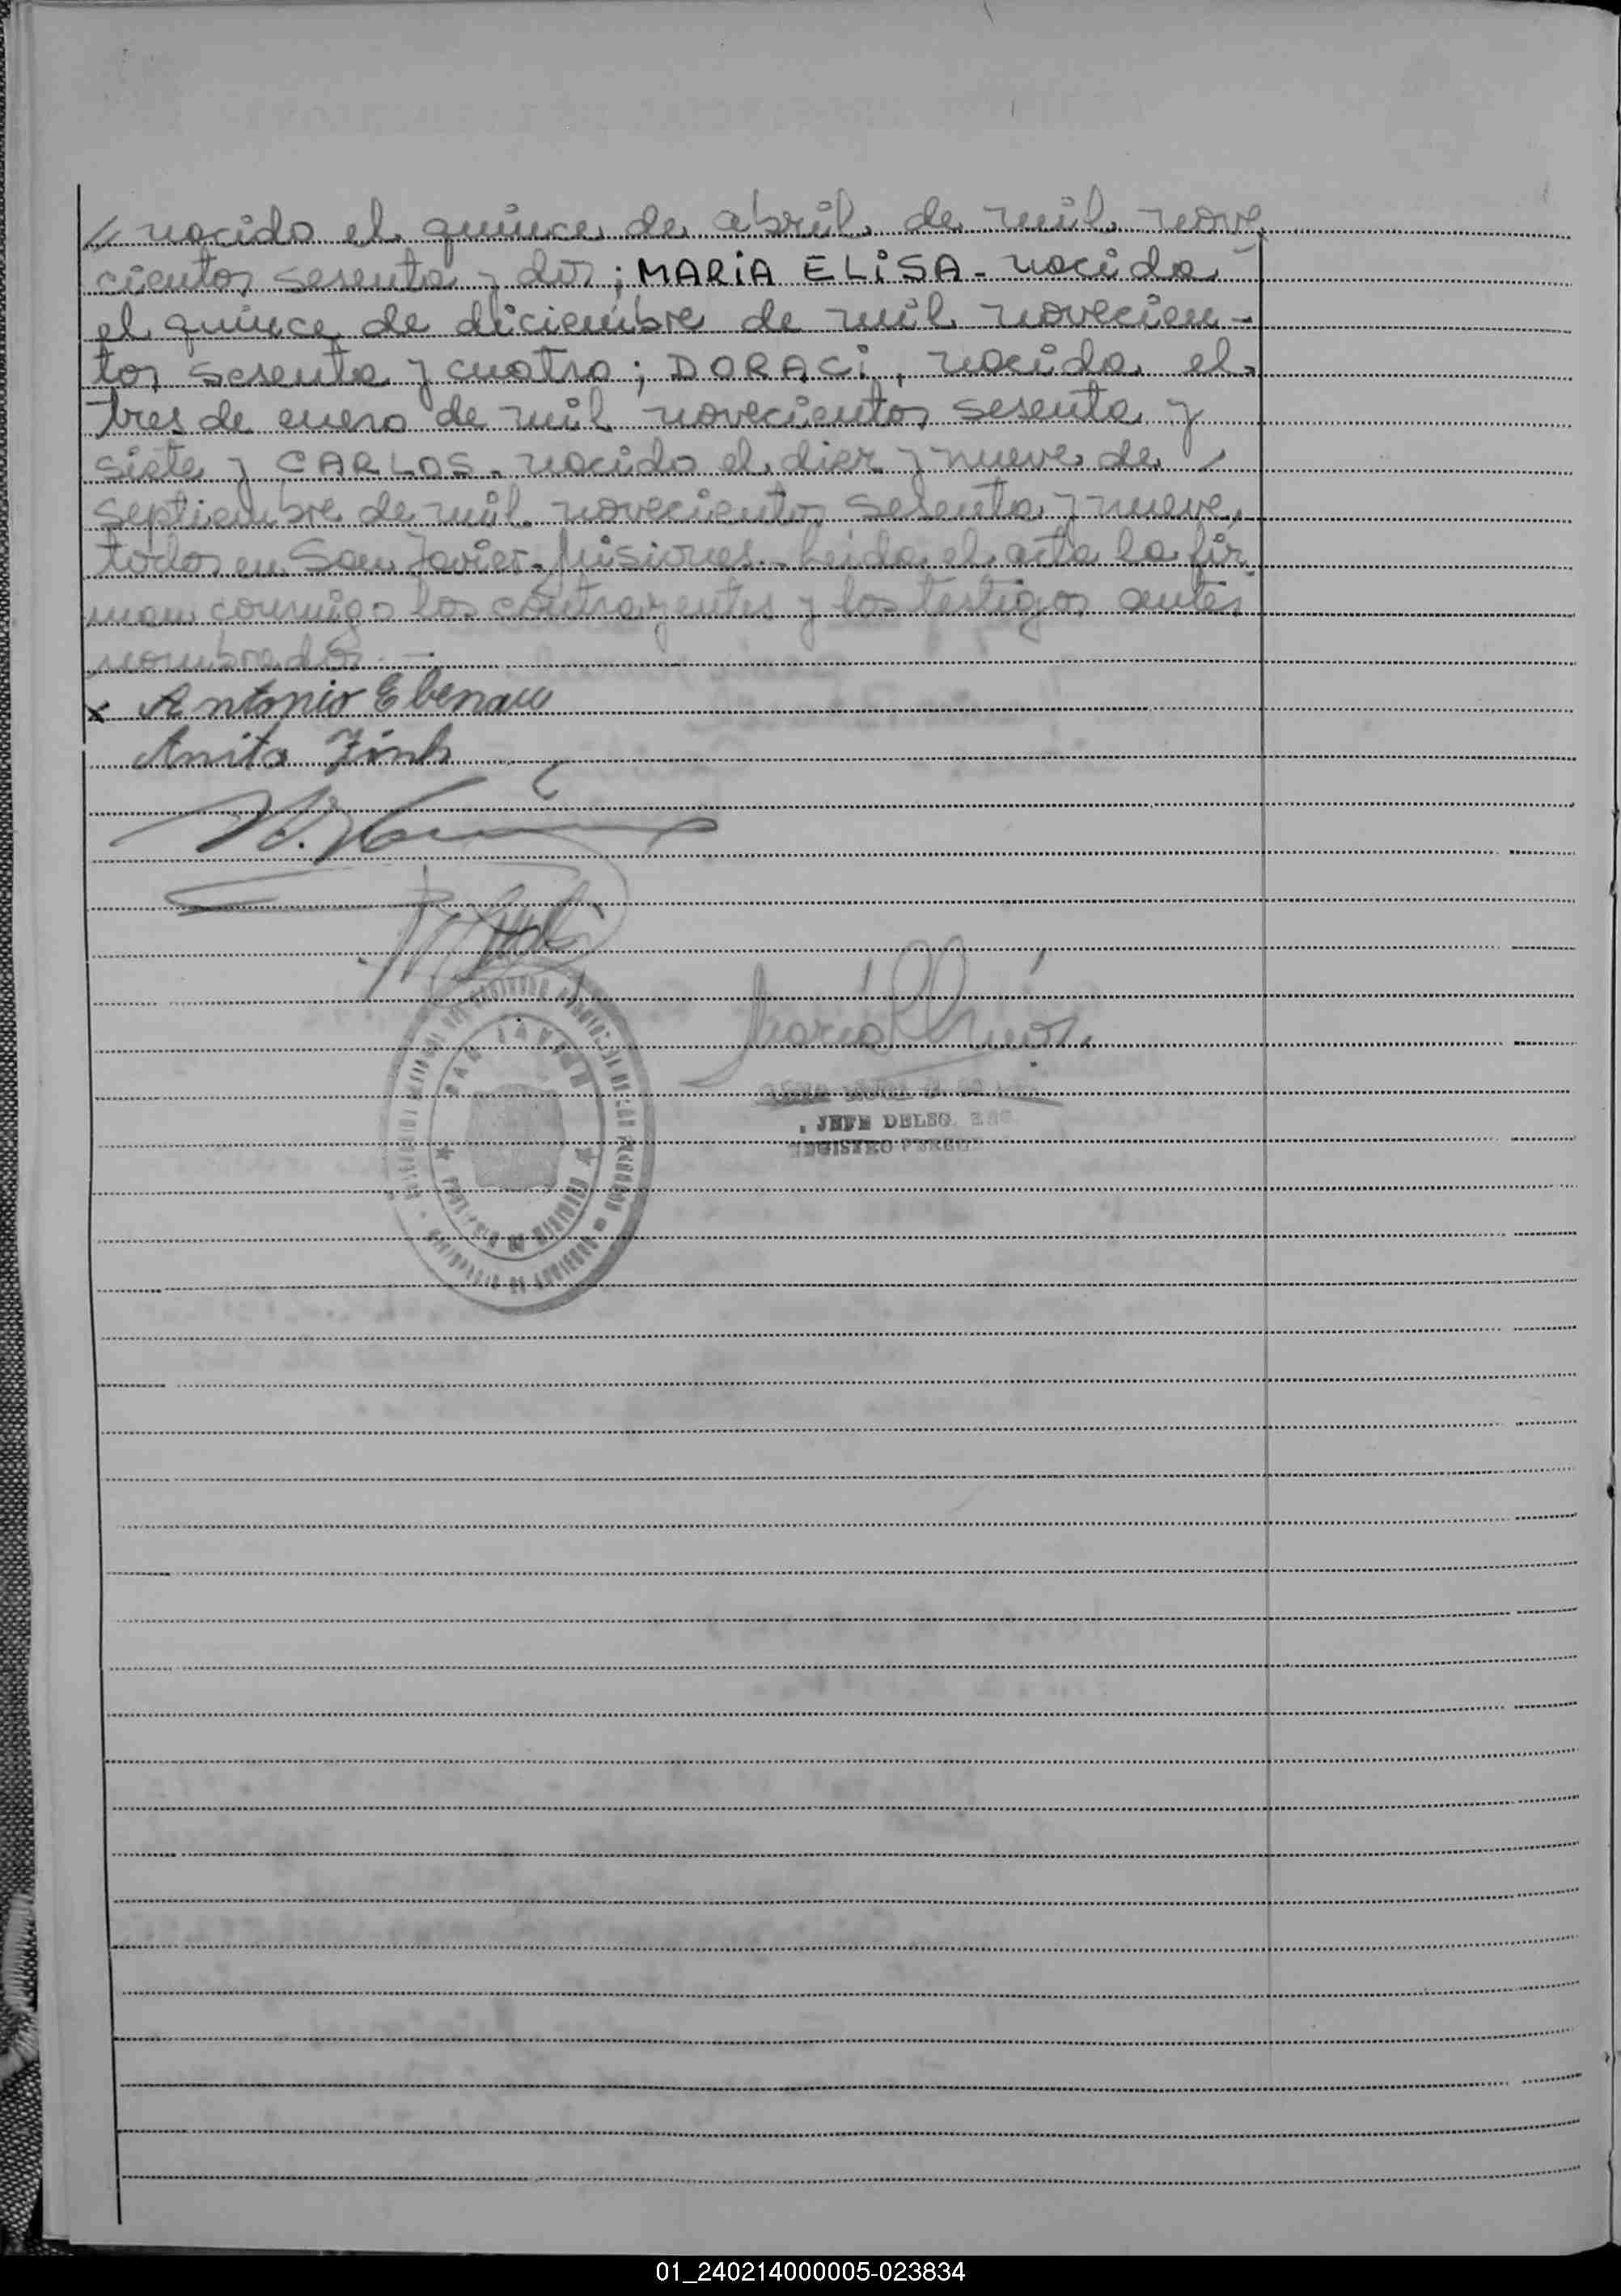 // nacido el quince de abril de mil nove
cientos sesenta y dos; MARIA ELISA - nacida
el quince de diciembre de mil novecien-
tos sesenta y cuatro; DORACI, nacida el
tres de enero de mil novecientos sesenta y
siete y CARLOS. nacido el diez y nueve de
septiembre de mil novecientos sesenta y nueve,
todos en San Javier. Misiones.- Leida el acta la fir
man conmigo los contrayentes y los testigos antes
nombrados. -
x Antonio Ebenau
Anita
JEFE DELEG.
REGISTRO
SAN JAVIER
01_240214000005-023834